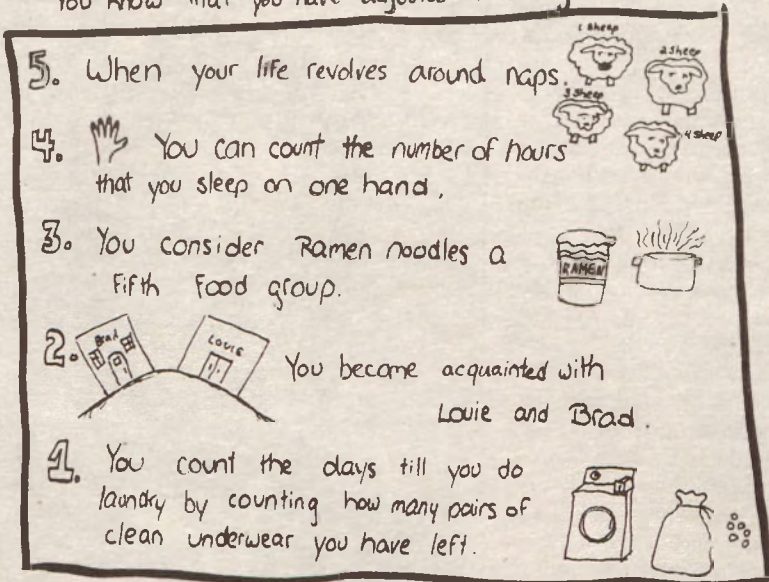 You know that you have adjusted
1 sheep
2 sheep
5. When your life revolves around naps.
3 sheep
4 sheep
4. You can count the number of hours
that you sleep on one hand.
3. You consider Ramen noodles a
Fifth Food group.
RAMEN
2. Brad
Louie
You become acquainted with
Louie and Brad.
1. You count the days till you do
laundry by counting how many pairs of
clean underwear you have left.